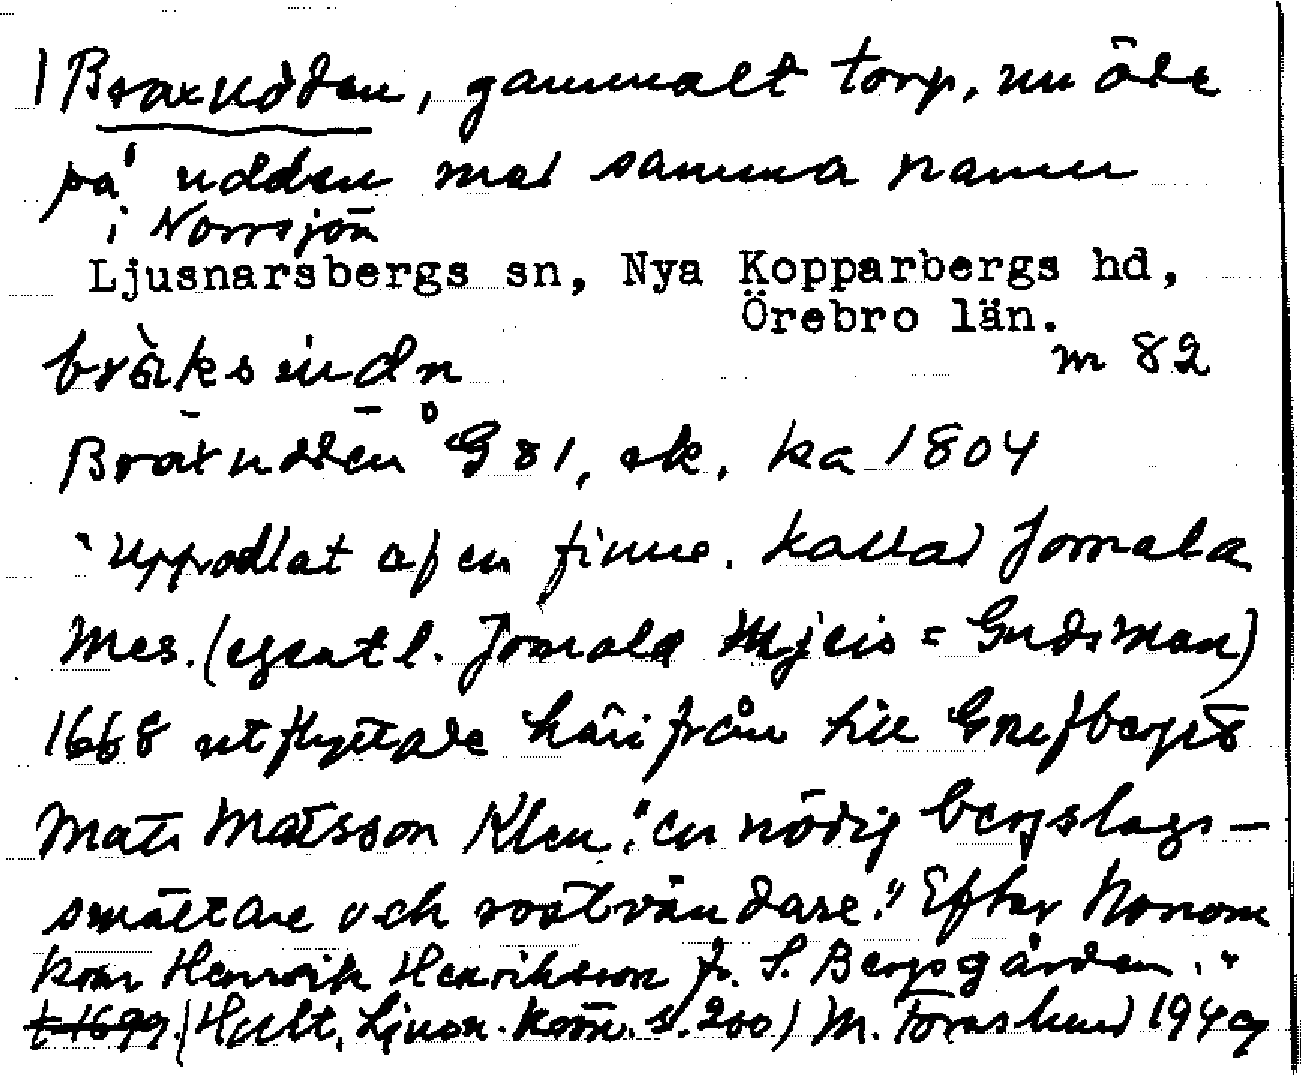 1 Braxudden, gammalt torp, nu öde
på udden med samma namn
i Norrsjön
Ljusnarsbergs sn, Nya Kopparbergs hd,
Örebro län.
m 82
Braxudden G 81, ek. ka 1804
"Upprodlat af en finne. kallad Jomala
Mes. (egentl. Jomala Mjeis = Guds Man)
1668 utflyttade härifrån till Gnifberget
Mats Matsson Klen: "en nödig bergslags-
smältare och rostvändare." Efter honom
kom Henrik Henriksson fr. S. Bergsgården."
t 1699 (Hult, Ljusn. kom. s. 200) M. Foraslund 1949